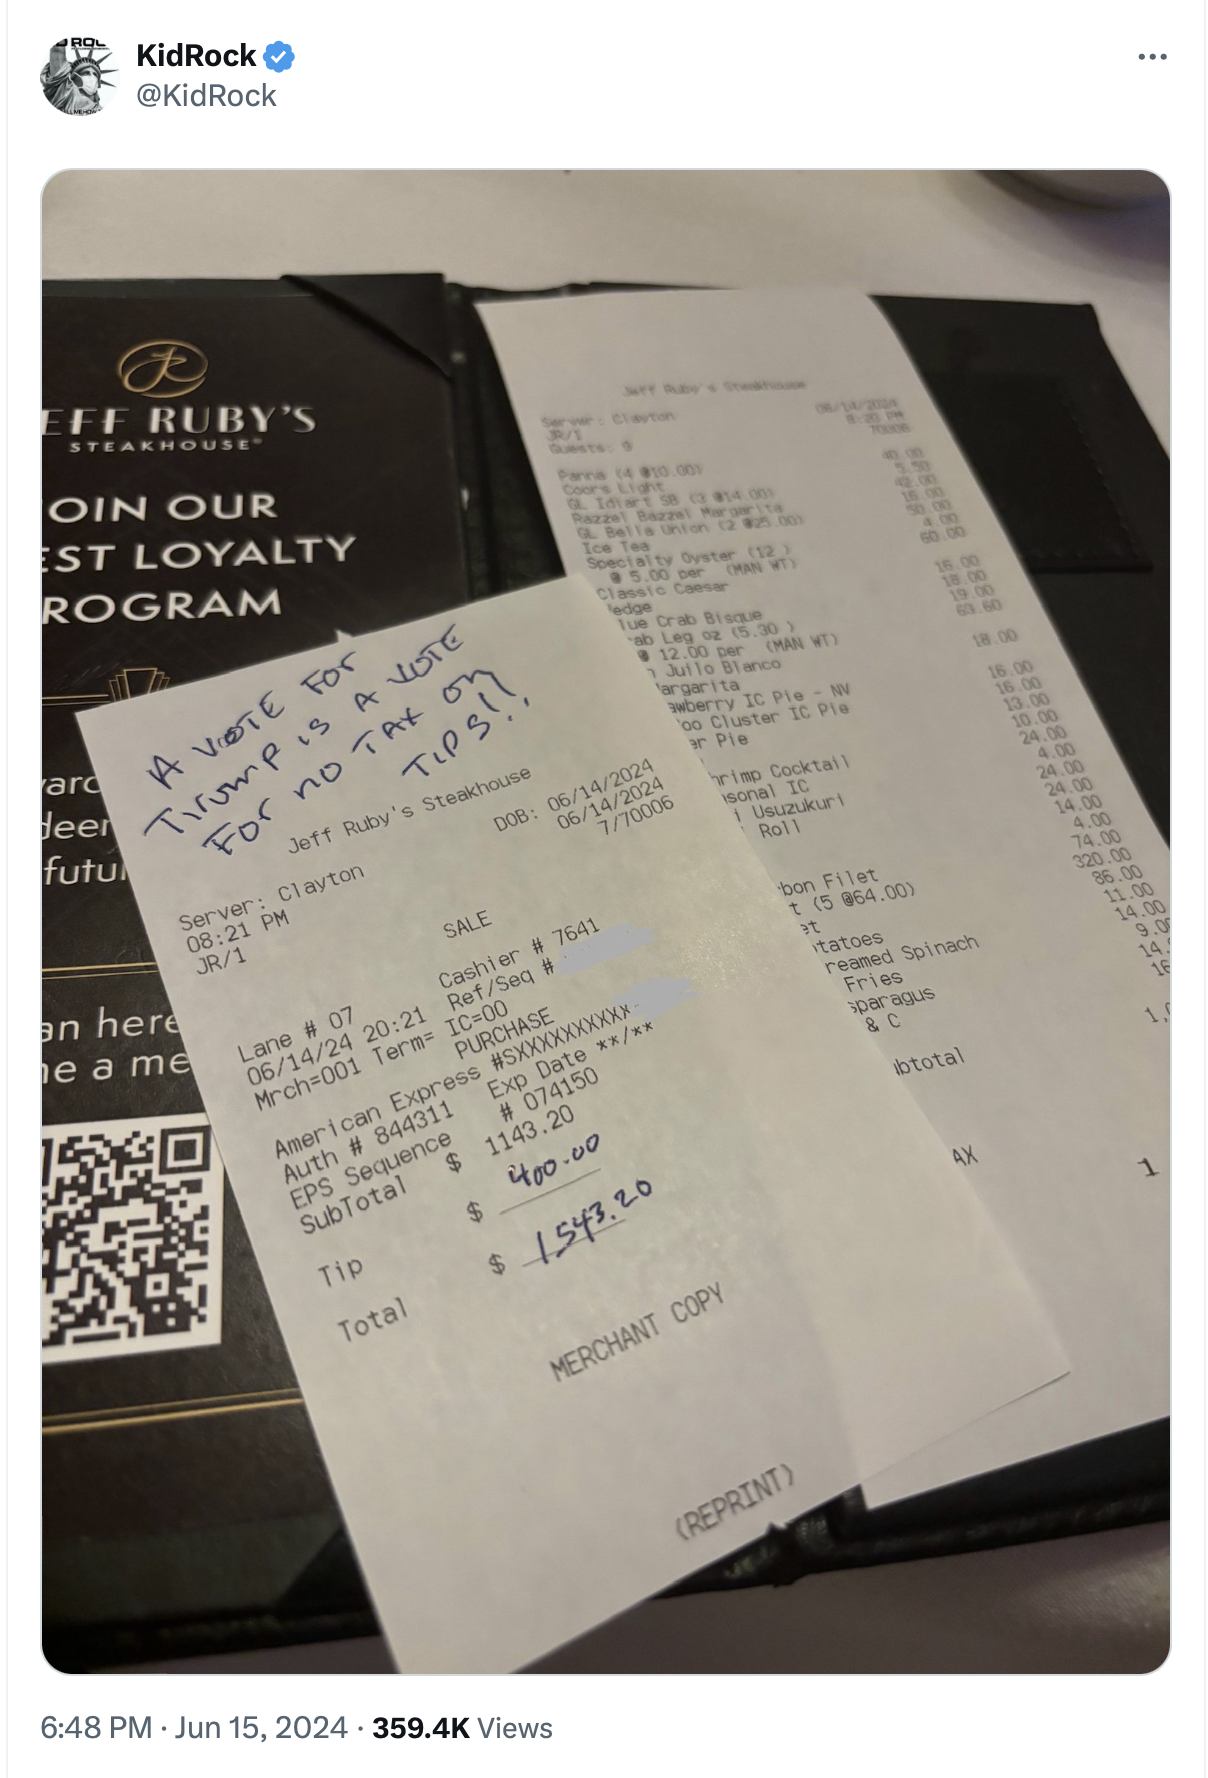 KidRock
@KidRock
EFF RUBY'S
STEAKHOUSE
OIN OUR
EST LOYALTY
ROGRAM
an here
e a me
Jeff Ruby's Steakhouse
Server: Clayton
06/14/2024
JR/1
8:20 PM
Guests: 9
70006
Panna (4 @10.00) 40.00
Coors Light 5.50
GL Idiart SB (3 @14.00) 42.00
Razzel Bazzel Margarita 16.00
GL Bella Union (2 @25.00) 50.00
Ice Tea 4.00
Specialty Oyster (12 ) 60.00
@ 5.00 per (MAN WT)
Classic Caesar 16.00
edge 18.00
lue Crab Bisque 19.00
ab Leg oz (5.30 ) 63.60
@ 12.00 per (MAN WT)
Juilo Blanco 18.00
argarita 16.00
awberry IC Pie - NV 16.00
oo Cluster IC Pie 13.00
er Pie 10.00
24.00
hrimp Cocktail 4.00
sonal IC 24.00
i Usuzukuri 24.00
Roll 14.00
4.00
74.00
bon Filet 320.00
t (5 @64.00) 86.00
et 11.00
tatoes 14.00
reamed Spinach
Fries
sparagus
& C
btotal
AX
1
A VOTE FOR
Trump is A VOTE
FOR NO TAX ON
TIPS!!
Jeff Ruby's Steakhouse
DOB: 06/14/2024
06/14/2024
7/70006
Server: Clayton
08:21 PM
JR/1
SALE
Cashier # 7641
Ref/Seq #
Lane # 07
06/14/24 20:21
Mrch=001 Term= IC=00
PURCHASE
American Express #SXXXXXXXXXX
Auth # 844311 Exp Date **/**
EPS Sequence # 074150
SubTotal $ 1143.20
Tip $ 400.00
Total $ 1,543.20
MERCHANT COPY
(REPRINT)
6:48 PM · Jun 15, 2024 · 359.4K Views